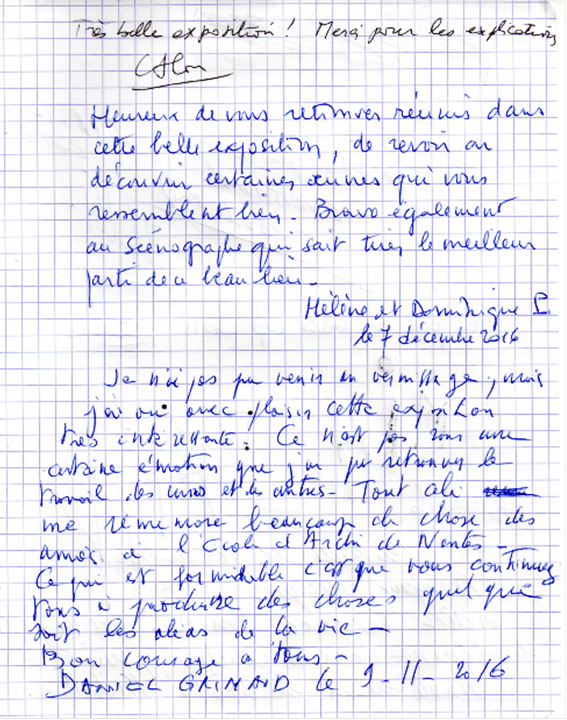 Très belle exposition ! Merci pour les explications
Heureux de vous retrouver réunis dans
cette belle exposition, de revoir ou
découvrir certaines œuvres qui vous
ressemblent bien. Bravo également
au scénographe qui sait tirer le meilleur
parti de ce beau lieu.
Hélène et Dominique P.
le 7 décembre 2016
Je n'ai pas pu venir au vernissage, mais
j'ai vu avec plaisir cette exposition
très intéressante. Ce n'est pas sans une
certaine émotion que j'ai pu retrouver le
travail des unes et des autres - Tout cela
me remémore beaucoup de chose des
années à l'école d'Archi de Nantes -
Ce qui est formidable c'est que vous continuez
tous à produire des choses quel que
soit les aléas de la vie -
Bon courage à tous -
DANIEL le 9-11-2016